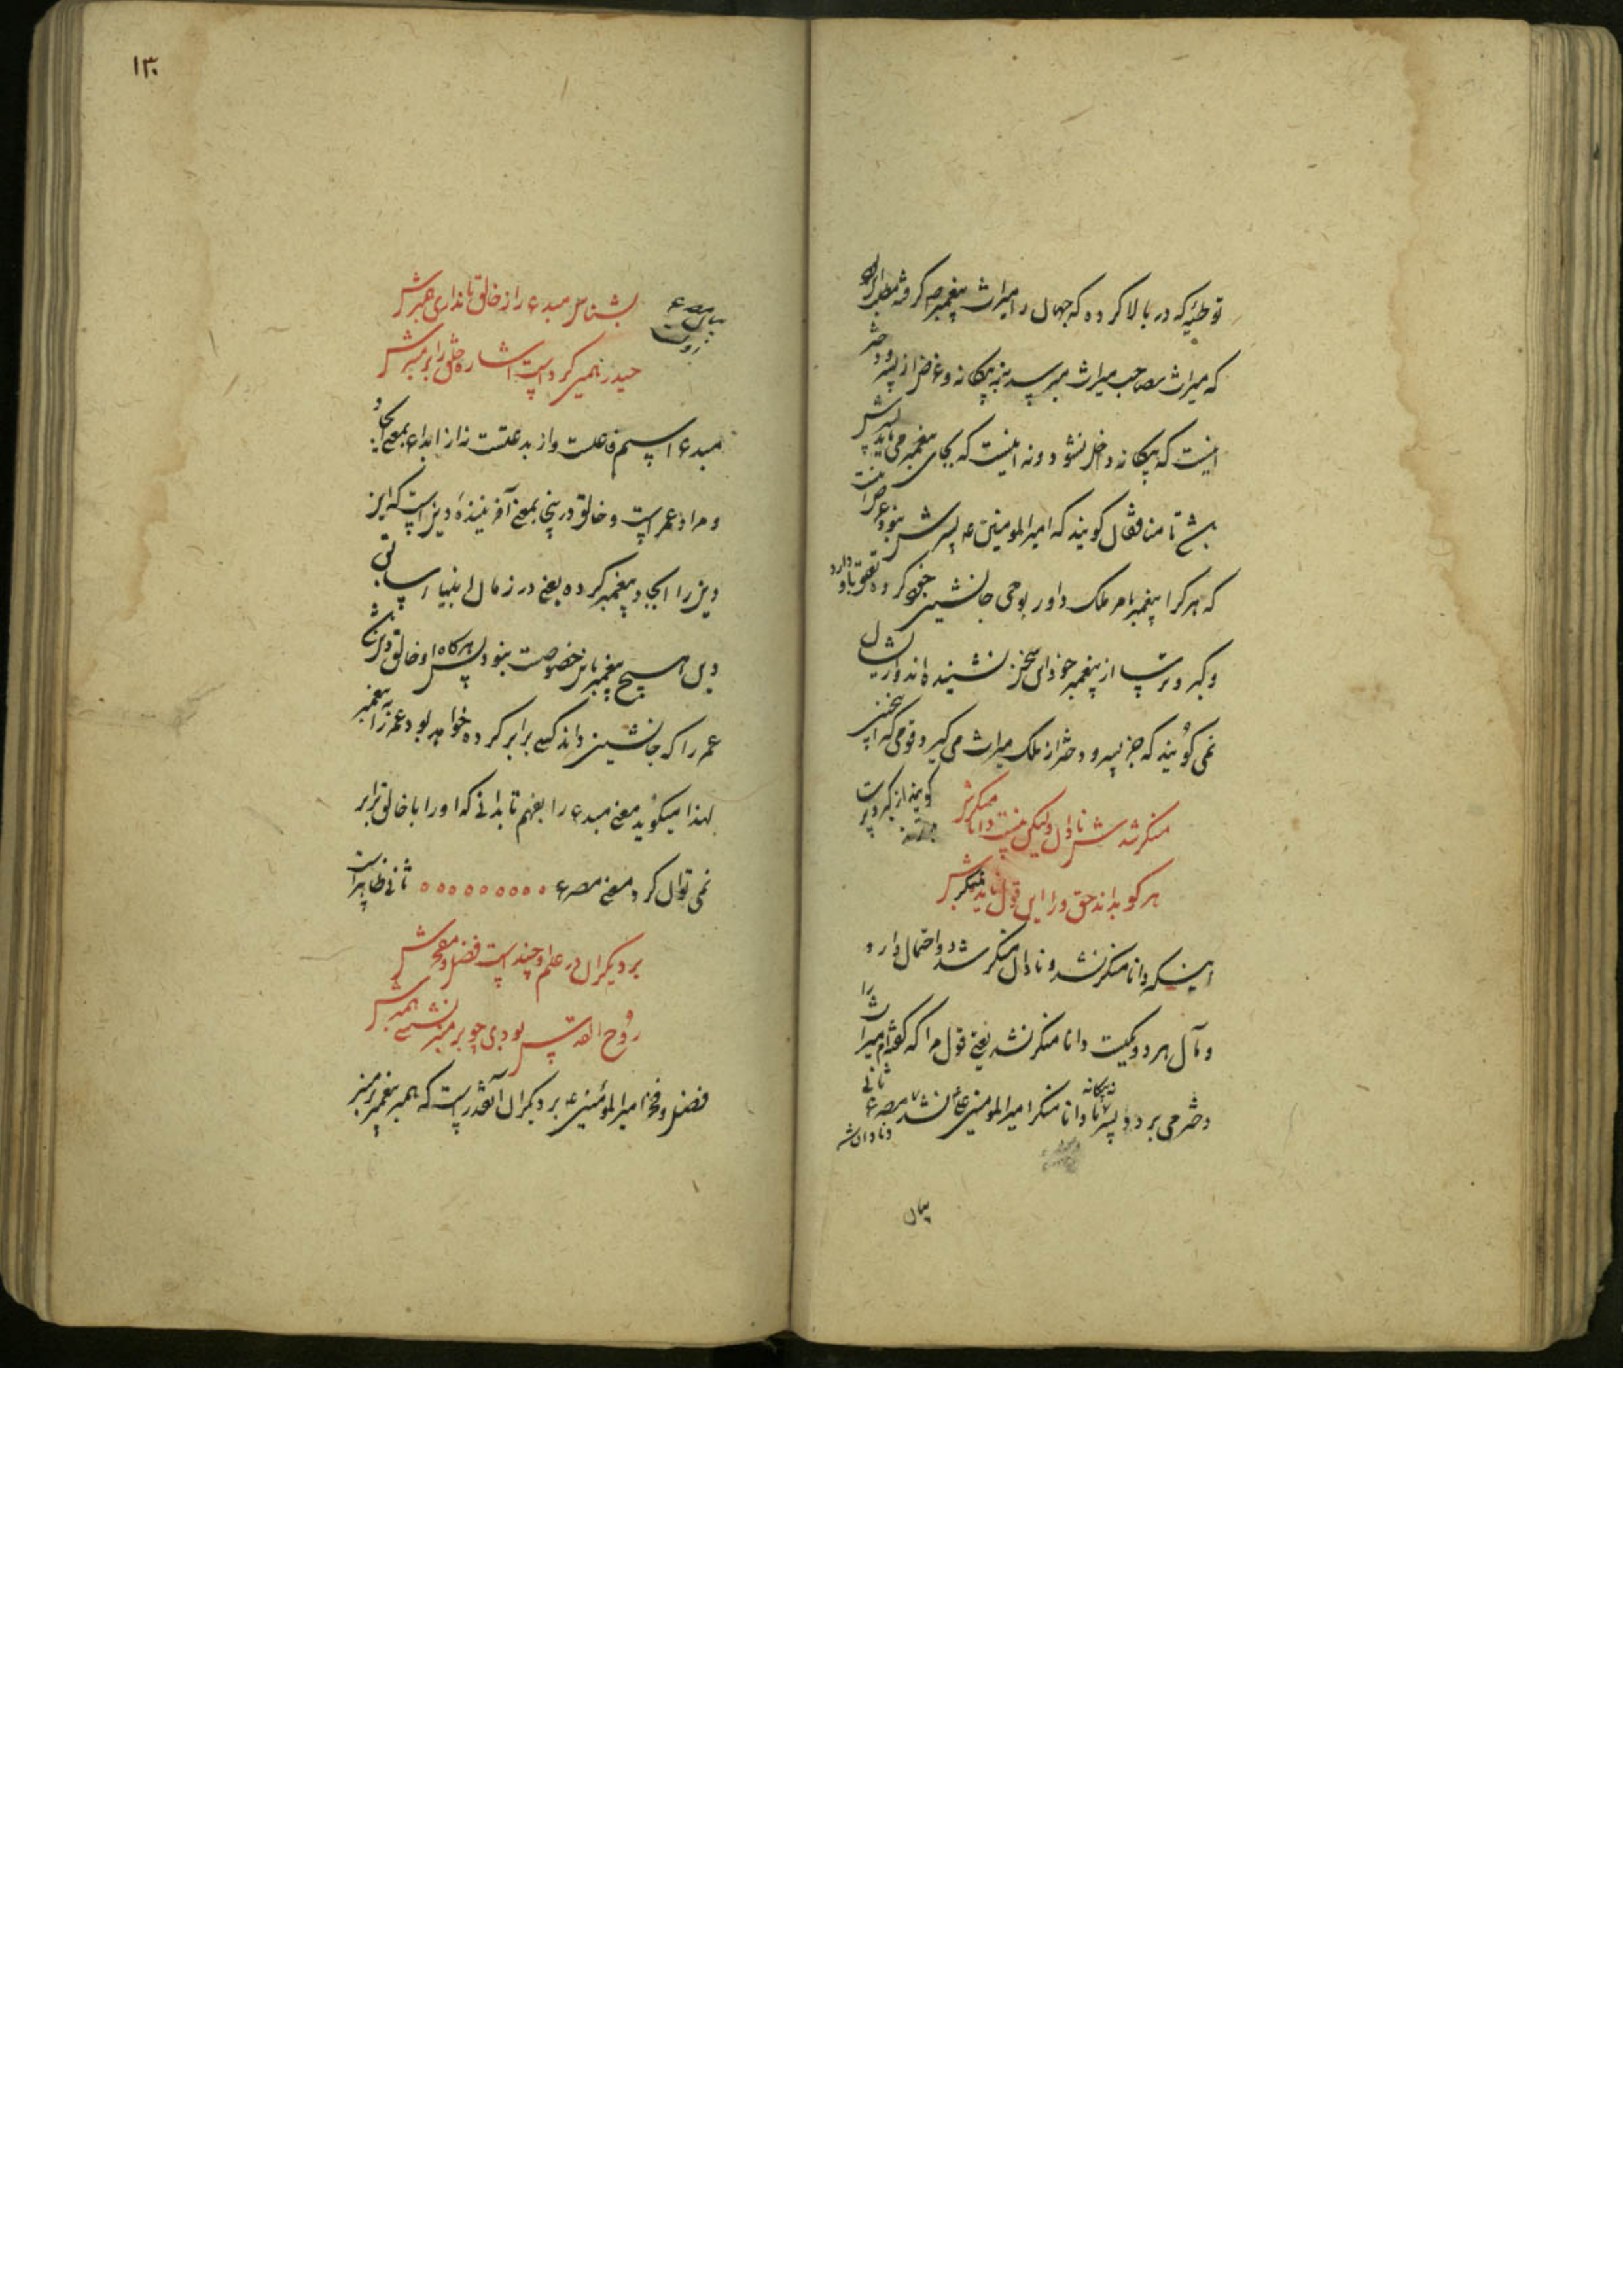 توطئه که در بالا کرده که جهان را میراث پیغمبر ص گرفته
که میراث بصاحب میراث میرسد نه به بیگانه و غرض از پسر و دختر
اینست که بیگانه داخل نشود و نه اینست که بجای پیغمبر می باید پسرش
باشد تا منافقان گویند که امیرالمومنین ع پسرش نبود
که هر کرا پیغمبر بامر ملک داور بوحی جانشین خود کرده تعلق باو دارد
و گبر و ترسا از پیغمبر خود این سخن نشنیده اند و ازیشان
نمی گویند که جز پسر و دختر از ملک میراث می گیرد و قومی که این سخن
گویند از گبر و
منکر شدش نادان ولیکن نیست دانا منکرش
هر کو بداند حق ورا این قول ناید منکرش
اینکه دانا منکر نشد و نادان منکر شد و احتمال دارد
و مآل هر دو یکیست دانا منکر نشد یعنی قول مرا که گفته ام میراث را
دختر می برد و پسر نه بیگانه یا دانا منکر امیرالمومنین علی نشد مصرع ثانی
بیان
۱۳۰
بشناس مبدع را ز خالق تا نداری همبرش
حیدر همین کرد است اشارت خلق را بر منبرش
مبدع اسم فاعلست و از بدعتست نه از ابداع بمعنی ایجاد
و مراد عمر است و خالق درینجا بمعنی آفریننده دین است که این
دین را ایجاد پیغمبر کرده یعنی در زمان انبیا سابق
دین هیچ پیغمبر باین خصوصیت نبود پس هرگاه او خالق دین باشد
عمر را که جانشین داند کسی برابر کرده خواهد بود عمر را به پیغمبر
لهذا میگوید معنی مبدع را بفهم تا بدانی که او را با خالق برابر
نمی توان کرد و معنی مصرع ثانی ظاهر است
بر دیگران در علم او چند است فضل و مفخرش
روح القدس بودی چو بر منبر نشستی همبرش
فضل و فخر امیرالمؤمنین ع بر دیگران آنقدر است که همبر پیغمبر بر منبر